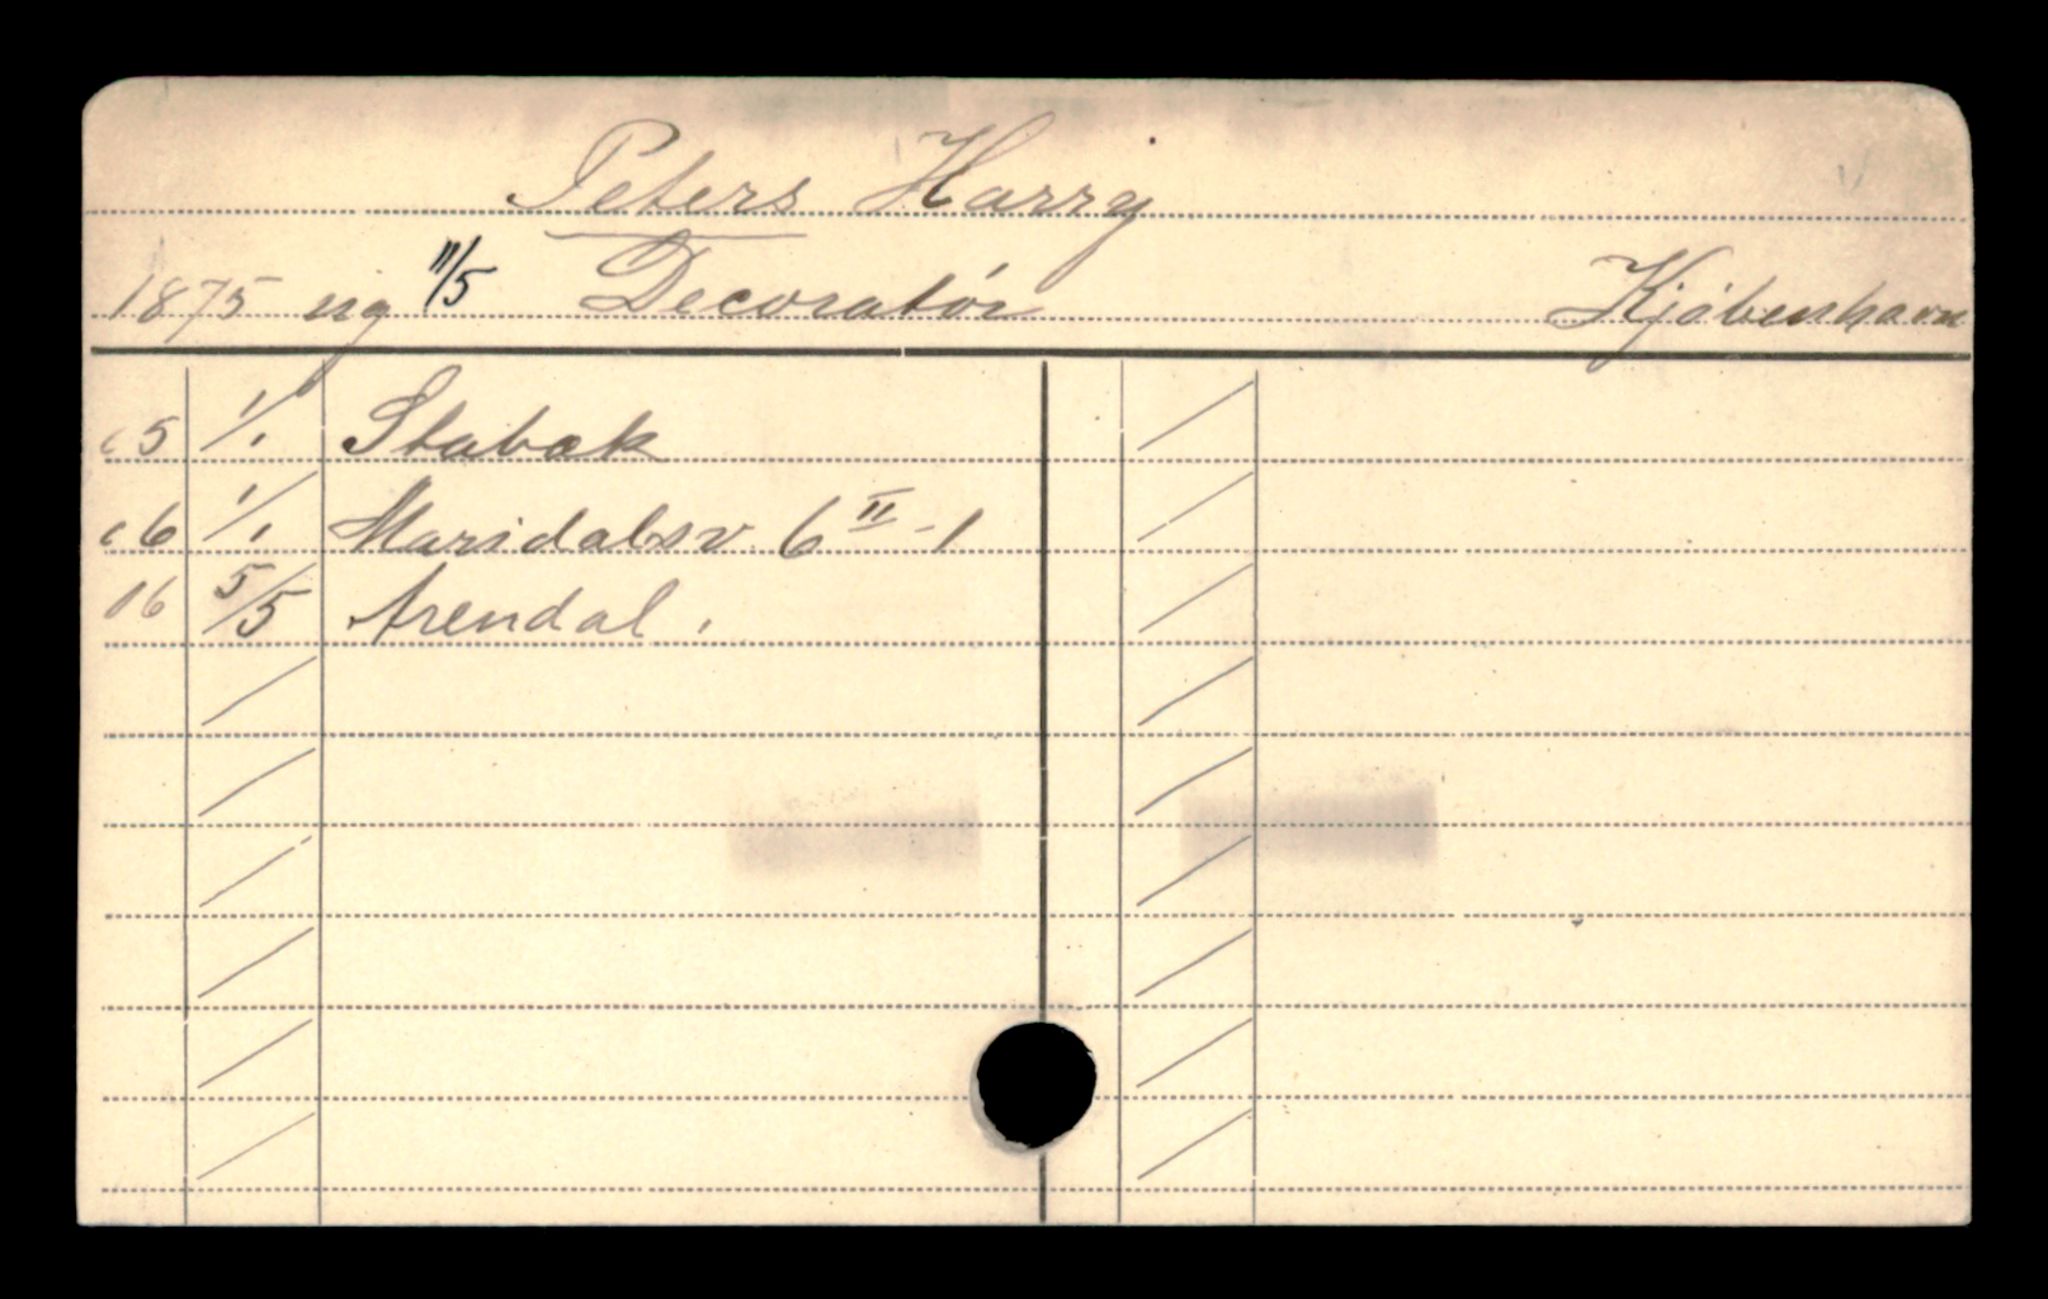 Peters Harry
1875 ug 11/5 Decoratör Kjöbenhavn
05 1/1 Stabæk
06 1/1 Maridalsv. 6 II - 1
06 5/5 Arendal.